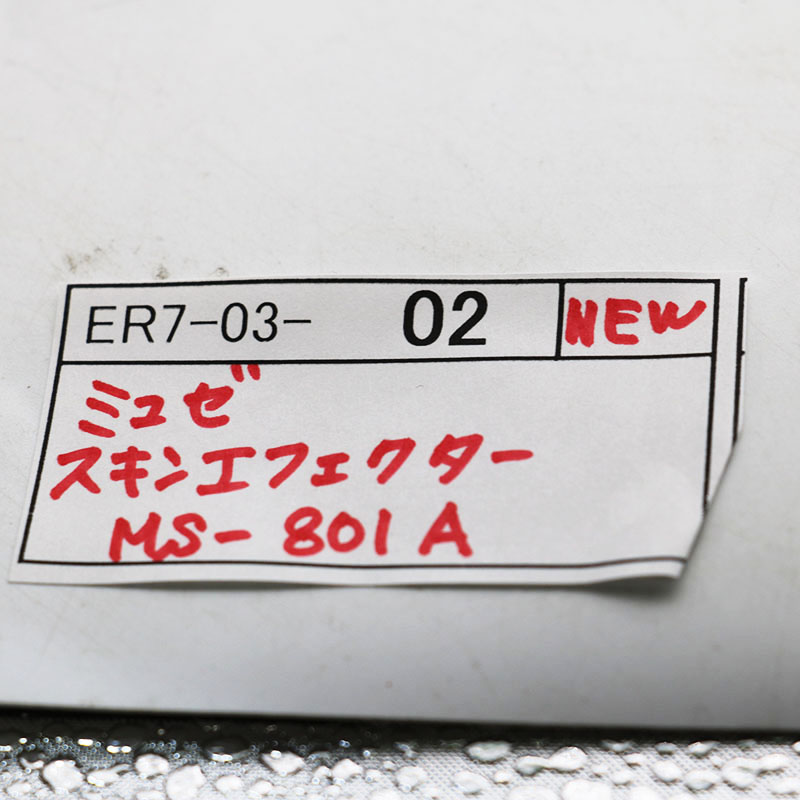 ER7-03- 02 NEW
ミュゼ
スキンエフェクター
MS-801A